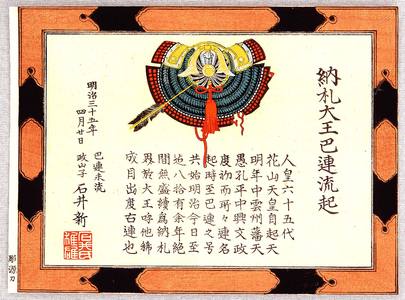 納札大王巴連流起
人皇六十五代
花山天皇自起天
明年中雲州藩天
愚孔平中興文政
度初而所々連名
起時至巴連之号
共始明治今日至
迠八拾有余年絶
間無盛續爲納札
界於大王呼他稱
成目出度古連也
明治三十五年
四月廿日
巴連末流
政山子 石井新
彫源刀